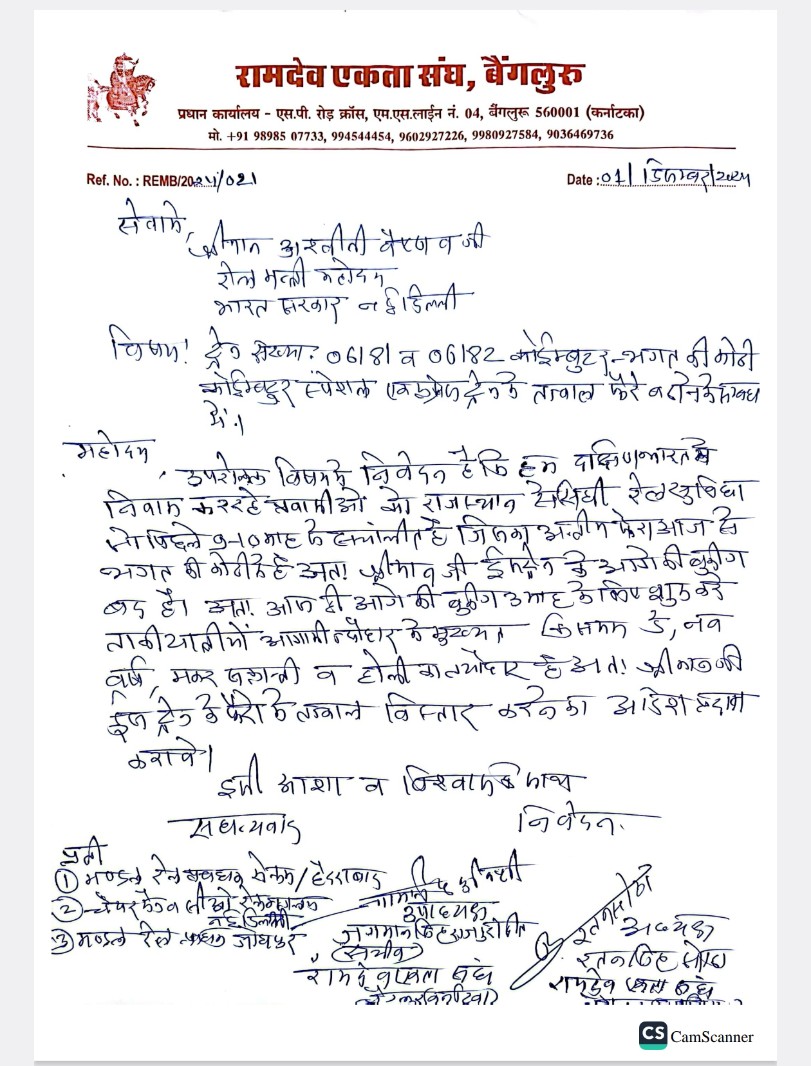 रामदेव एकता संघ, बैंगलुरू
प्रधान कार्यालय - एस.पी. रोड़ क्रॉस, एम.एस.लाईन नं. 04, बैंगलुरू 560001 (कर्नाटका)
मो. +91 98985 07733, 994544454, 9602927226, 9980927584, 9036469736
Ref. No. : REMB/2024/021
Date : 01/डिसम्बर/2024
सेवामे,
श्रीमान अश्वीनी वैष्णव जी
रेल मन्त्री महोदय
भारत सरकार नई दिल्ली
विषय: ट्रेन संख्या: 06181 व 06182 कोईम्बटुर-भगत की कोठी
कोईम्बटुर स्पेशल एक्सप्रेस ट्रेन के तत्काल फेरे बढाने के सबध
मे।
महोदय,
उपरोक्त विषय मे निवेदन है कि हम दक्षिण भारत मे
निवास कर रहे प्रवासीओ को राजस्थान से सिधी रेल सुविधा
जो पिछले 9-10 माह से संचालीत है जिसका अन्तीम फेरा आज से
भगत की कोठी से है अतः श्रीमान जी ईस ट्रेन के आगे की बुकींग
बंद है। अतः आप ही आगे की बुकींग 3 माह के लिए शुरू करे
ताकी यात्रीयो आगामी त्यौहार के मुख्यत क्रिसमस डे, नव
वर्ष, मकर सक्रान्ती व होली का त्योहार है अतः श्रीमान की
इस ट्रेन के फेरो के तत्काल विस्तार करने का आदेश प्रदान
करावे।
इसी आशा व विश्वास के साथ
सधन्यवाद
निवेदन.
प्रती
① मण्डल रेल प्रबंधक सेलम/हैदराबाद
② चेयरमैन व सीओ रेल मंत्रालय
नई दिल्ली
③ मण्डल रेल प्रबंधक जोधपुर
उपाध्यक्ष
जगमालसिंह राजपुरोहित
(सचीव)
रामदेव एकता संघ
अध्यक्ष
रामदेव एकता संघ
CS CamScanner